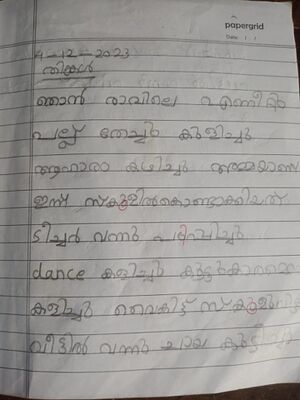 papergrid
Date: / /
4-12-2023
തിങ്കൾ
ഞാൻ രാവിലെ എണീറ്റു
പല്ല് തേച്ചു കുളിച്ചു
ആഹാരാ കഴിച്ചു അമ്മയാണ്
ഇന്ന് സ്കൂളിൽകൊണ്ടാക്കിയത്
ടീച്ചർ വന്നു പഠിപ്പിച്ചു
dance കളിച്ചു
കളിച്ചു വൈകിട്ട്
വീട്ടിൽ വന്നു ചായ കുടിച്ചു